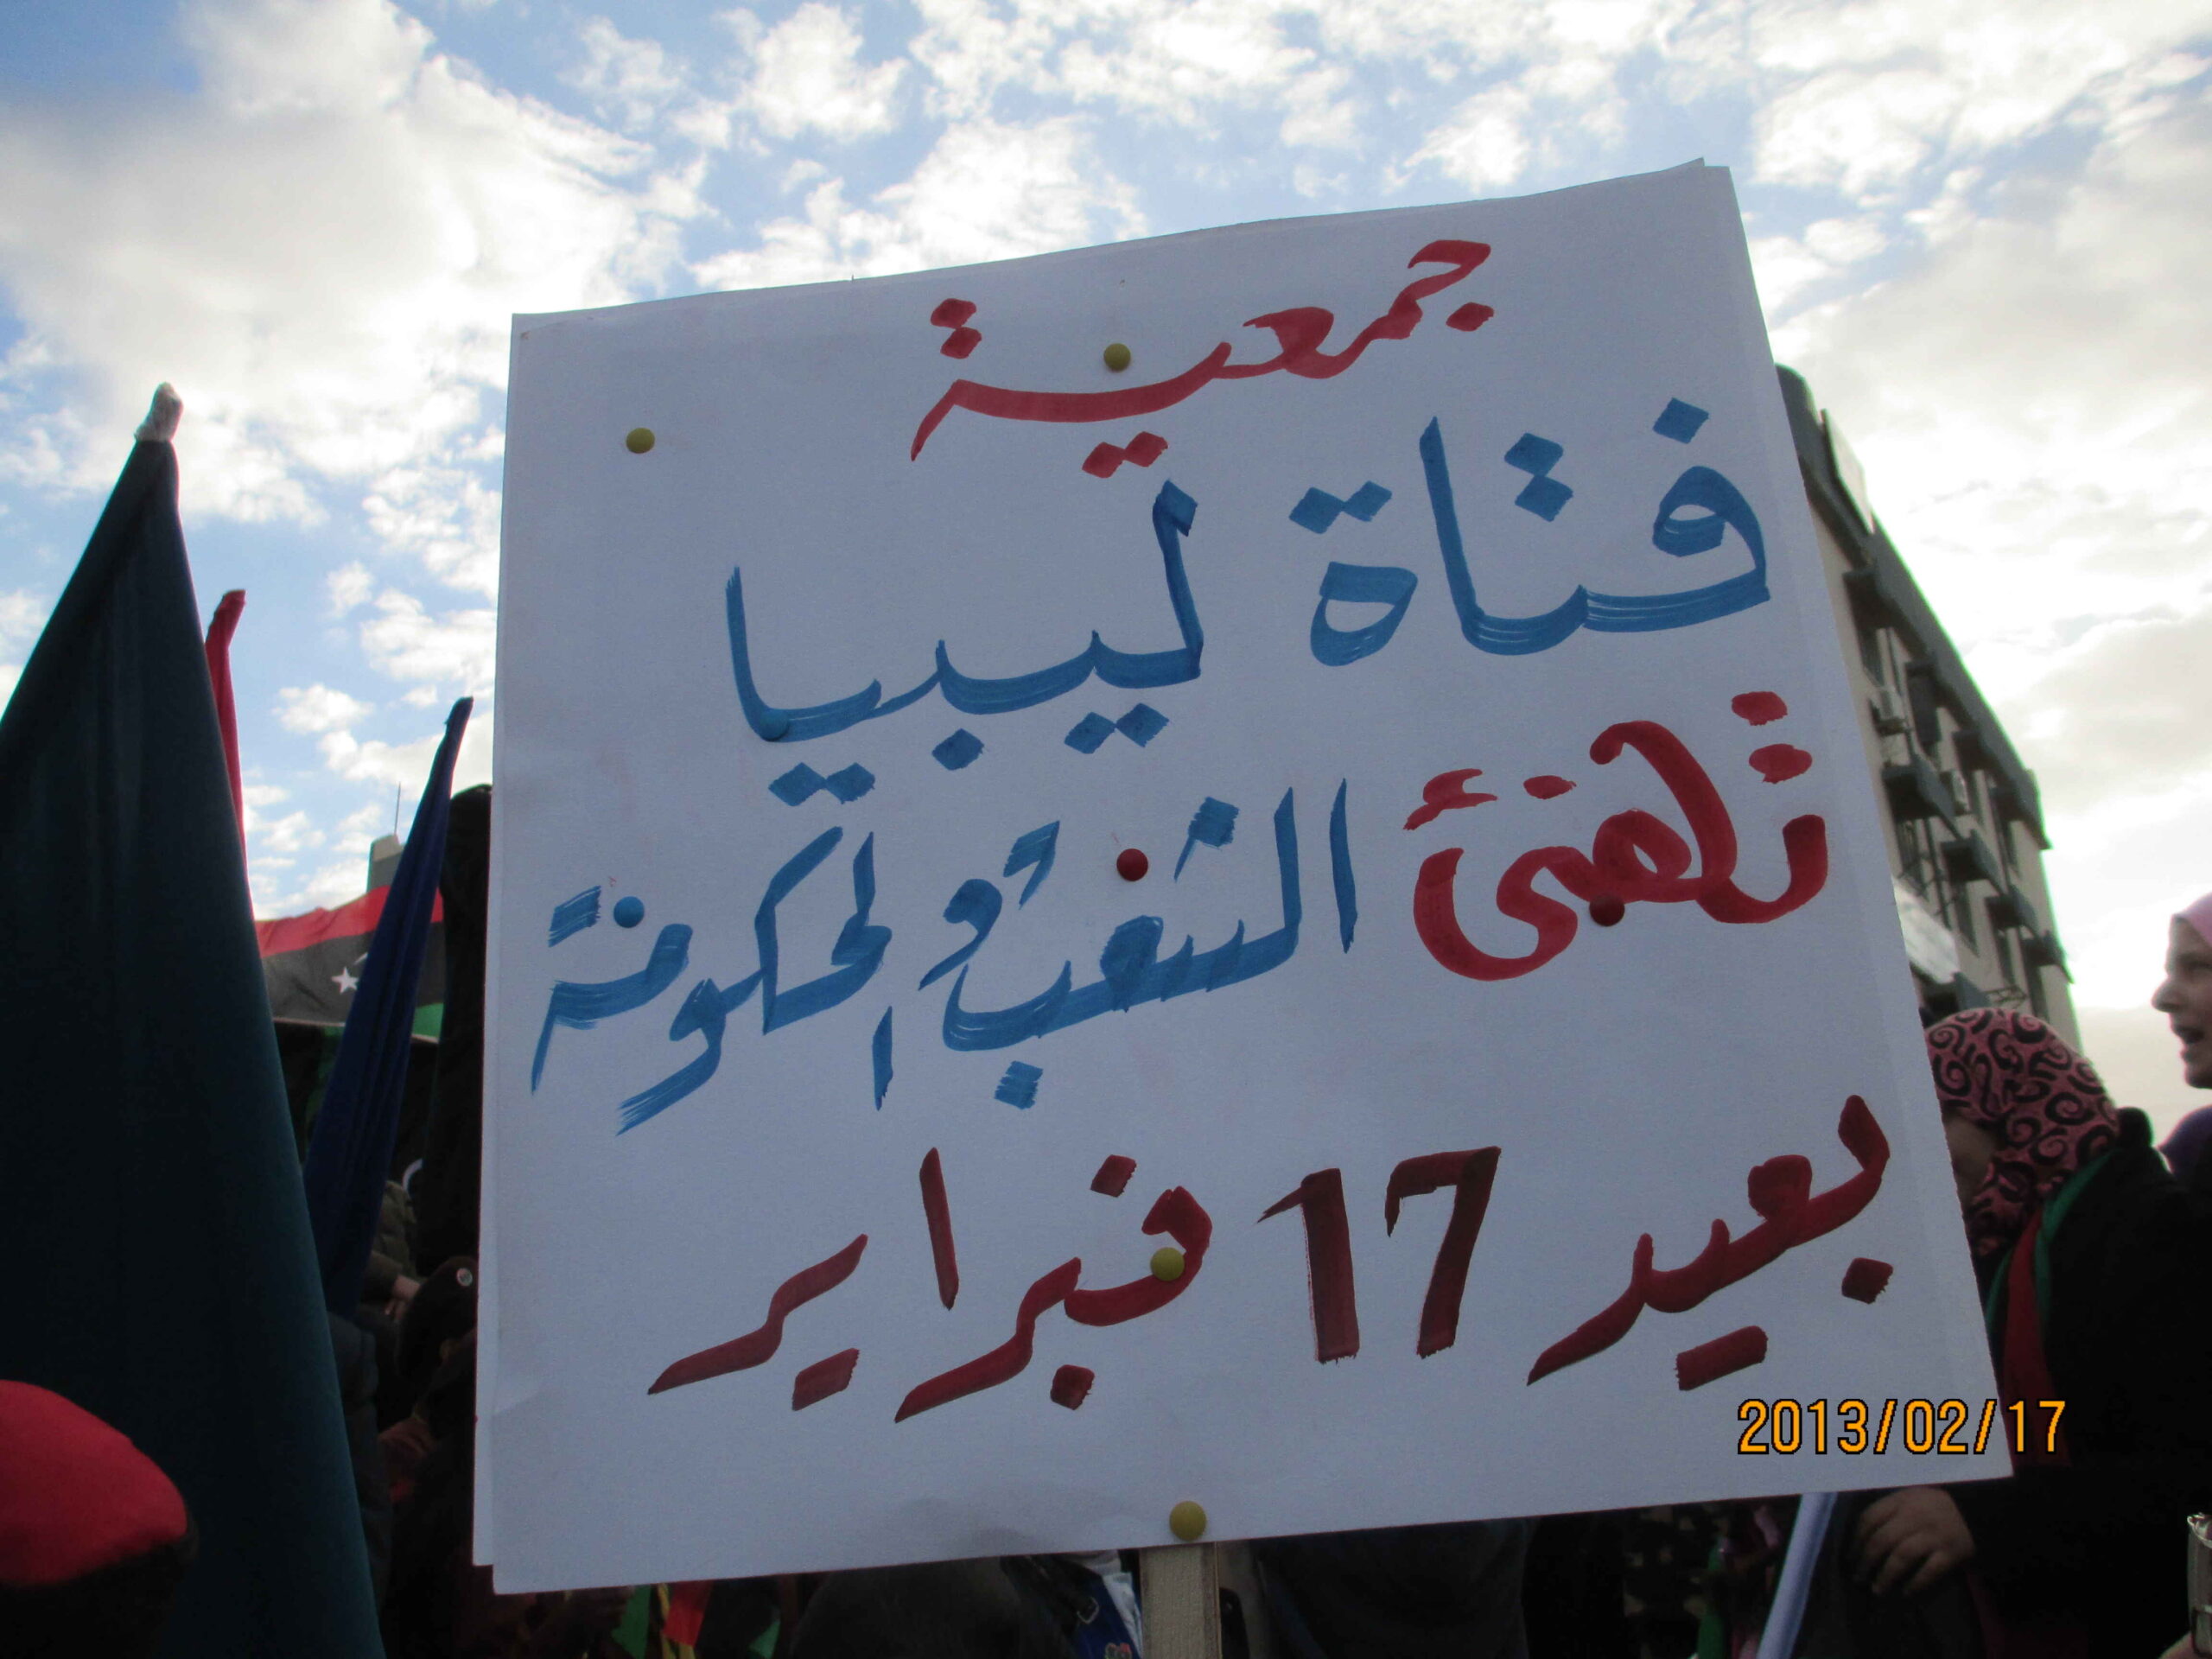 جمعية
فتاة ليبيا
تهنئ الشعب والحكومة
بعيد 17 فبراير
2013/02/17